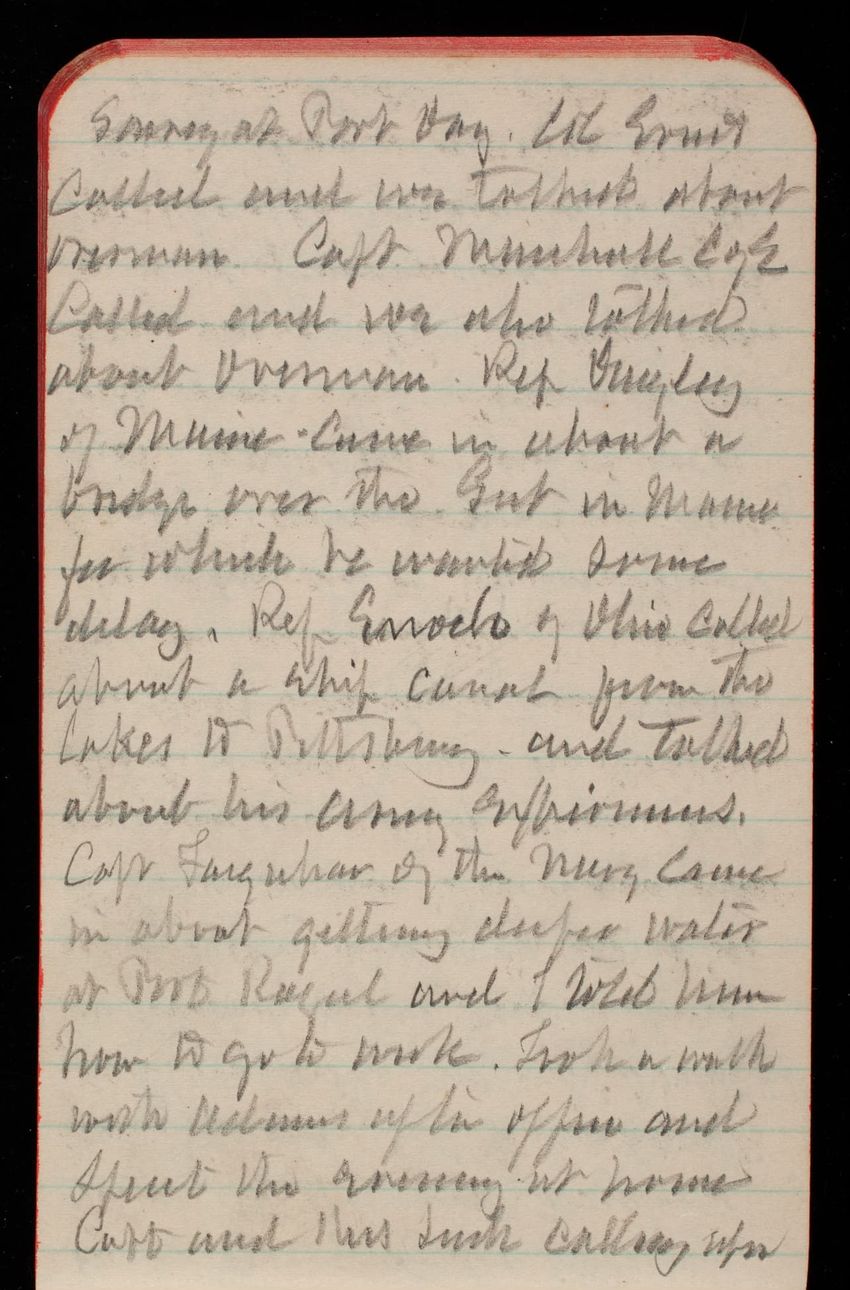 Survey at Port Day. Col Ernst
Called and we talked about
Overman. Capt Marshall C of E
Called and we also talked
about Overman. Rep Dingley
of Maine came in about a
bridge over the Gut in Maine
for which he wanted some
delay. Rep Enochs of Ohio called
about a ship canal from the
lakes to Pittsburg - and talked
about his army experiences.
Capt Farquhar of the Navy came
in about getting deeper water
at Port Royal and I told him
how to go to work. Took a walk
with Adams after office and
Spent the evening at home
Capt and Mrs calling upon